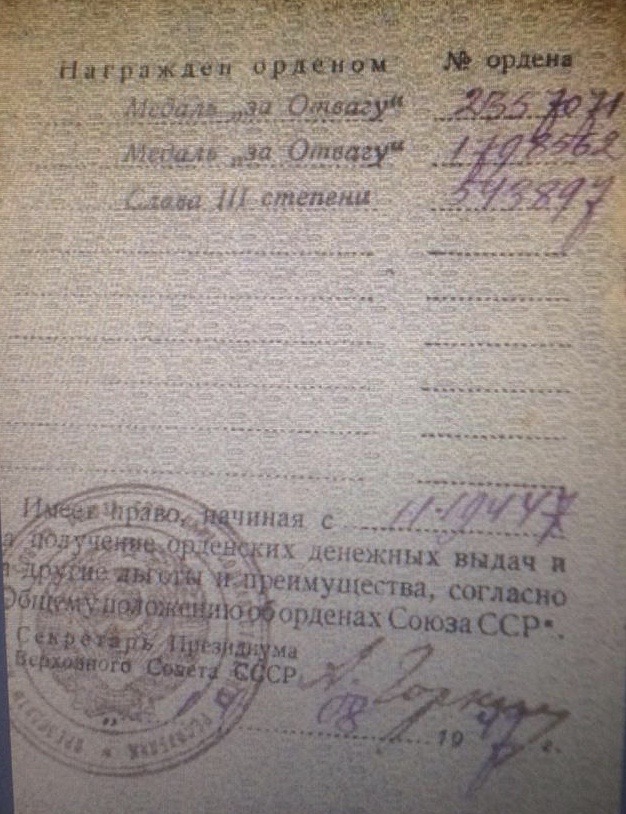 Награжден орденом № ордена
Медаль „за Отвагу“ 2357071
Медаль „за Отвагу“ 1798562
Слава III степени 543897
Имеет право, начиная с
на получение орденских денежных выдач и
и другие льготы и преимущества, согласно
„Общему положению об орденах Союза ССР“.
Секретарь Президиума
Верховного Совета СССР
А. Горкин
„ 08 1947 г.